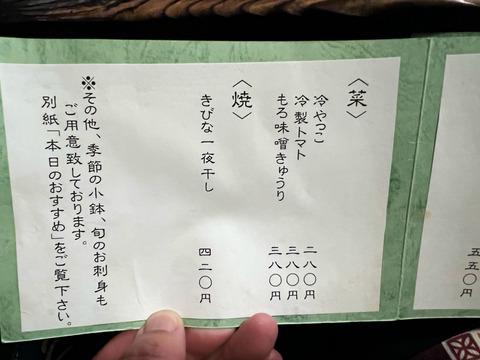 五五〇円
〈菜〉
冷やっこ 二八〇円
冷製トマト 三八〇円
もろ味噌きゅうり 三八〇円
〈焼〉
きびな一夜干し 四二〇円
※その他、季節の小鉢、旬のお刺身も
ご用意致しております。
別紙「本日のおすすめ」をご覧下さい。